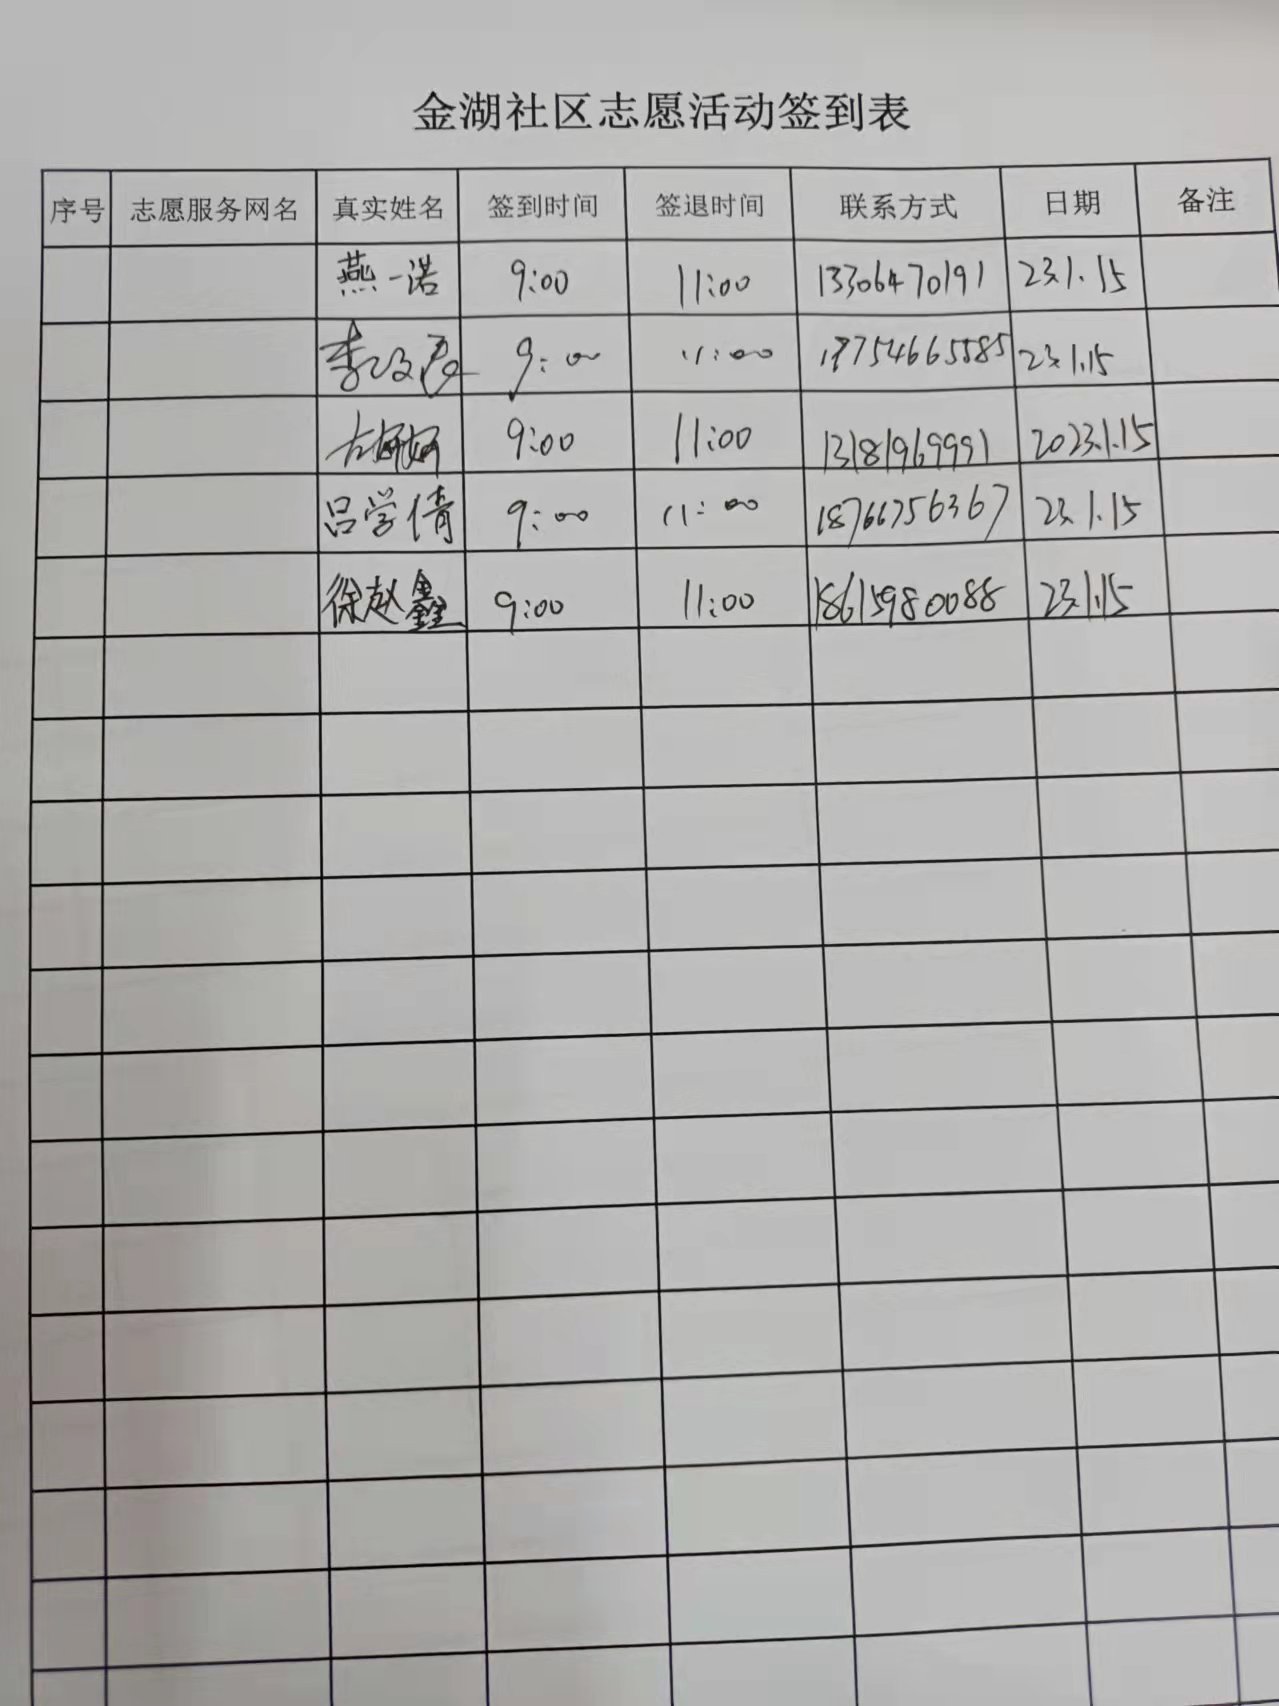 金湖社区志愿活动签到表
序号 志愿服务网名 真实姓名 签到时间 签退时间 联系方式 日期 备注
燕一诺 9:00 11:00 13306470191 23.1.15
李 9:00 11:00 18754665585 23.1.15
9:00 11:00 13181969991 2023.1.15
吕学倩 9:00 11:00 18766756367 23.1.15
徐赵鑫 9:00 11:00 18615980088 23.1.15